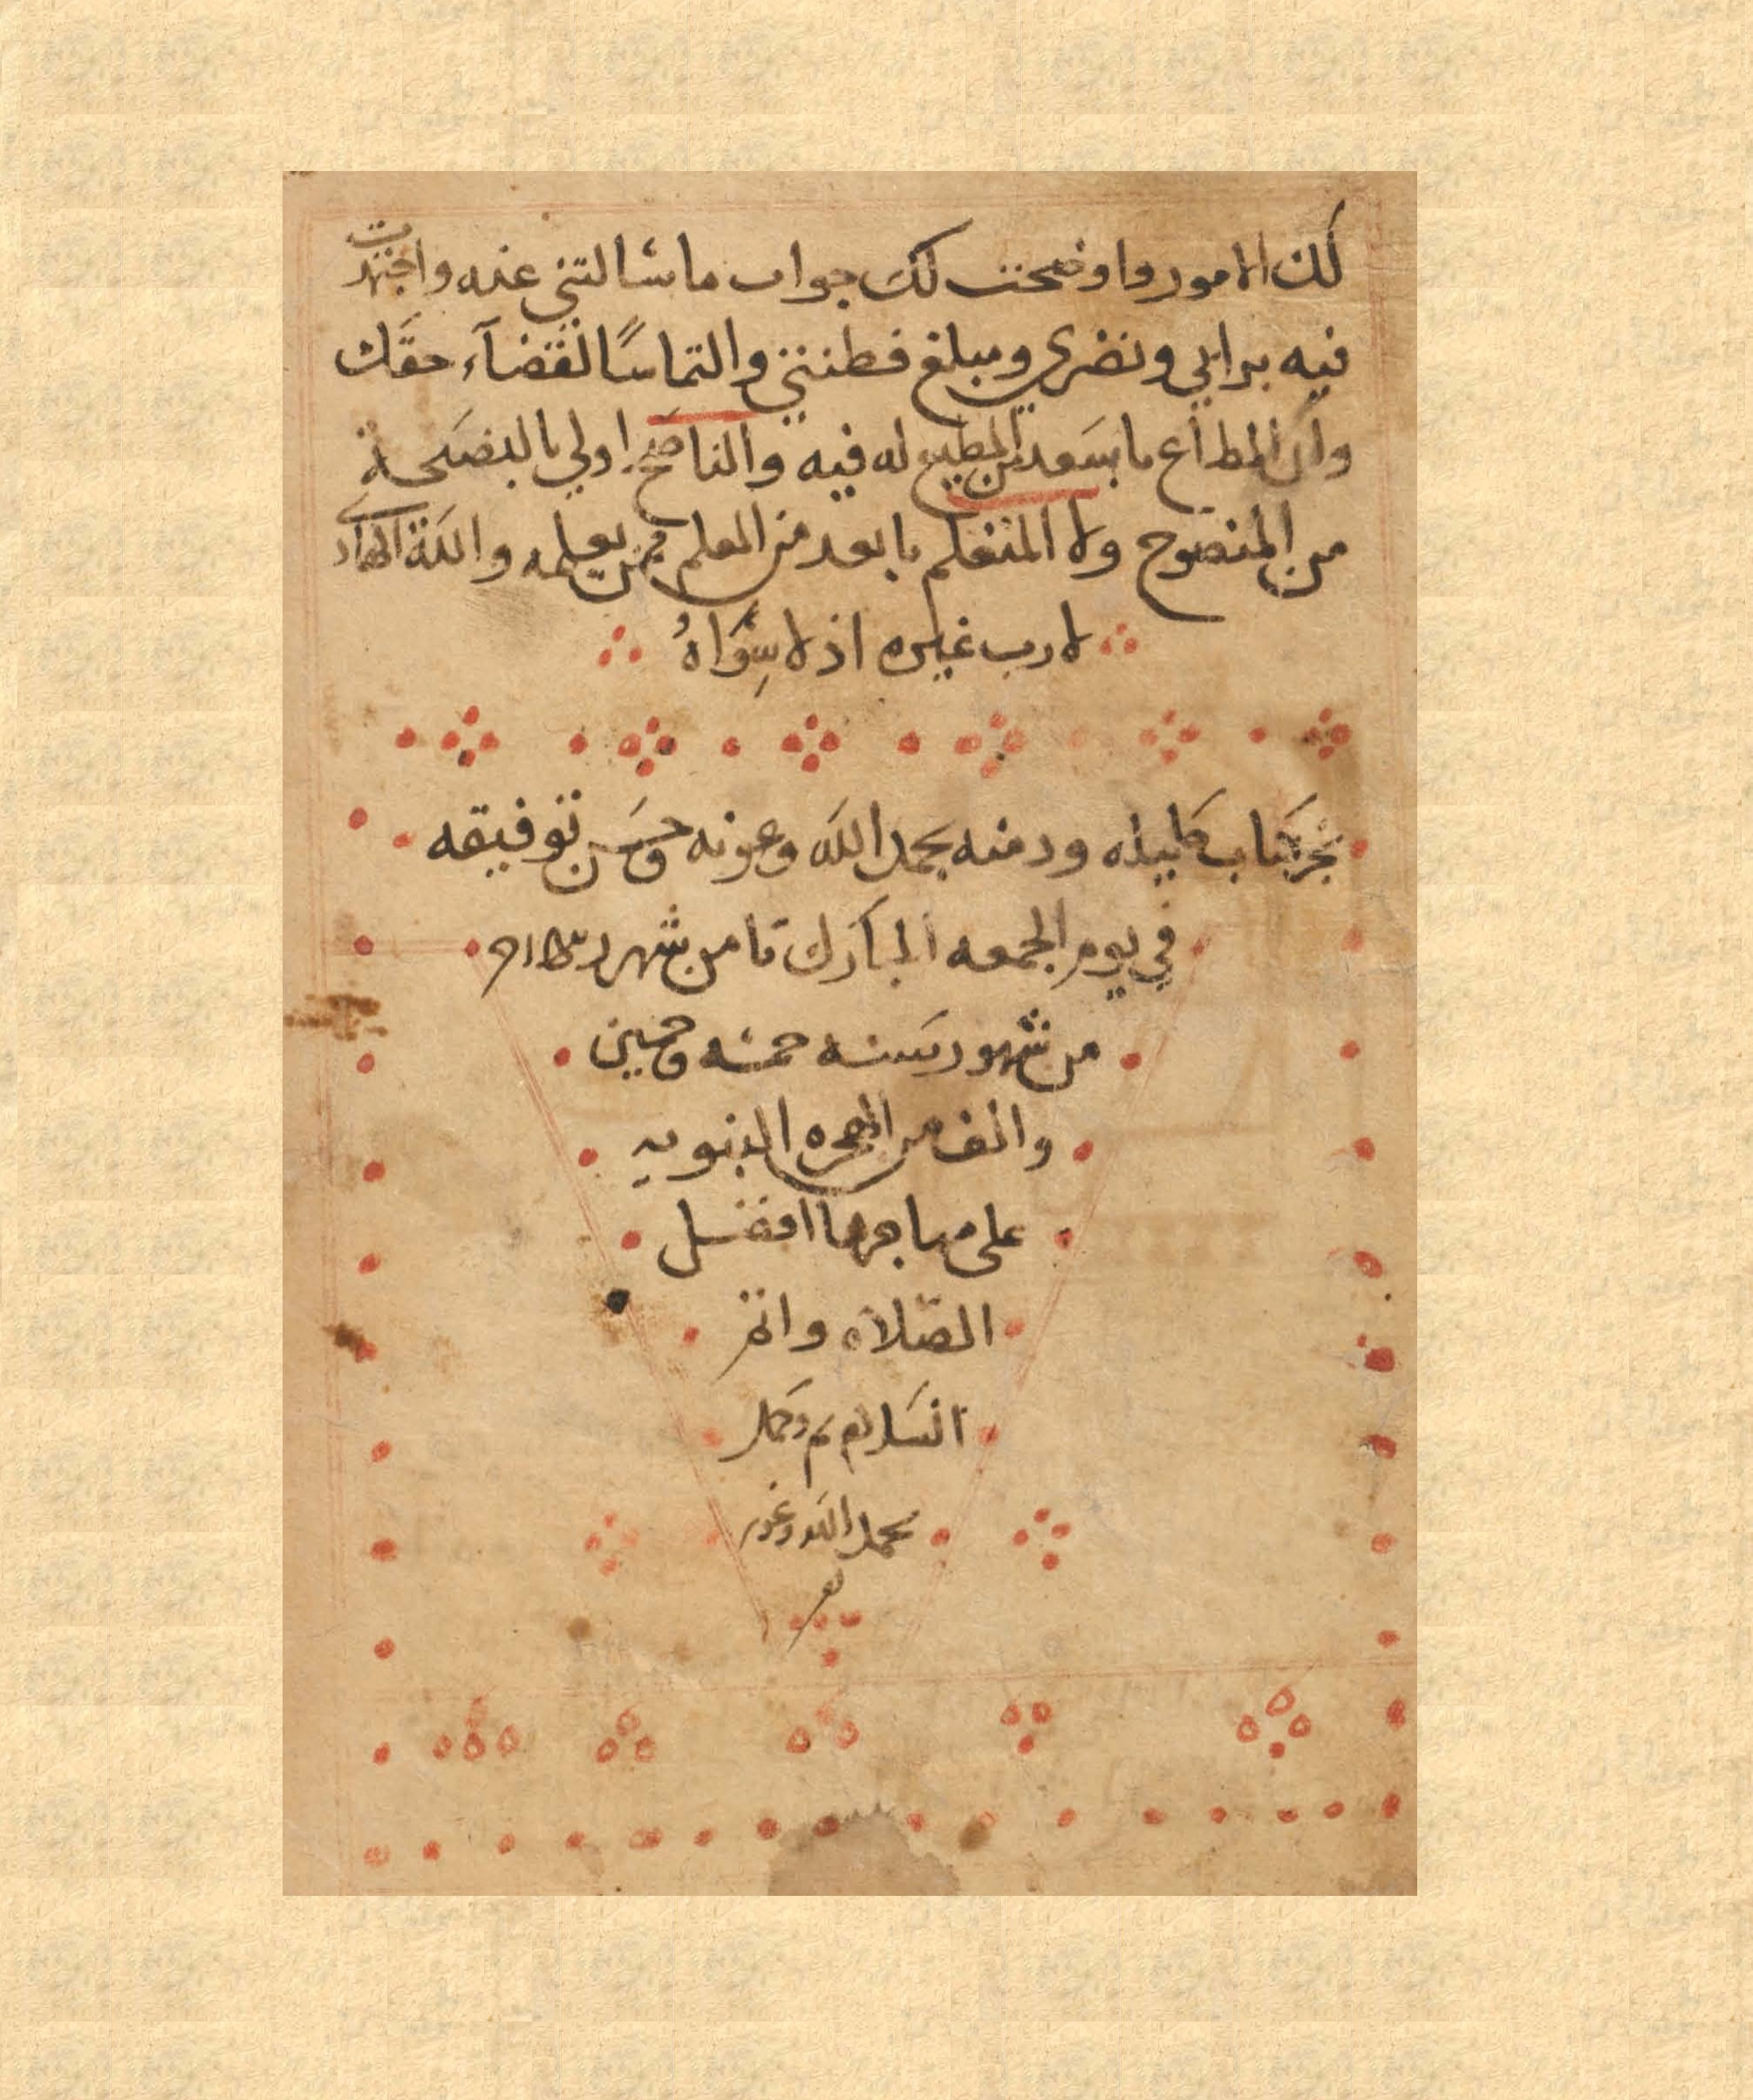 لك الامور واوضحت لك جواب ما سالتني عنه واجتهدت
فيه برايي ونضري ومبلغ فطنتي والتماسًا لقضآء حقك
وان المطاع ما بسعد من المطيع له فيه والناصح اولى بالنصيحة
من المنصوح ولا المتعلم بابعد من المعلم ممن يعلمه والله الهادي
لا رب غيره اذ لا سِوَاهُ
نجز كتاب كليله ودمنه بحمد الله وعونه وحسن توفيقه
في يوم الجمعه المبارك ثامن شهر
من شهور سنه خمسه وخمسين
والف من الهجره النبويه
على مهاجرها افضل
الصّلاه واتم
السلام تم وكمل
بحمد الله وعونه
تم